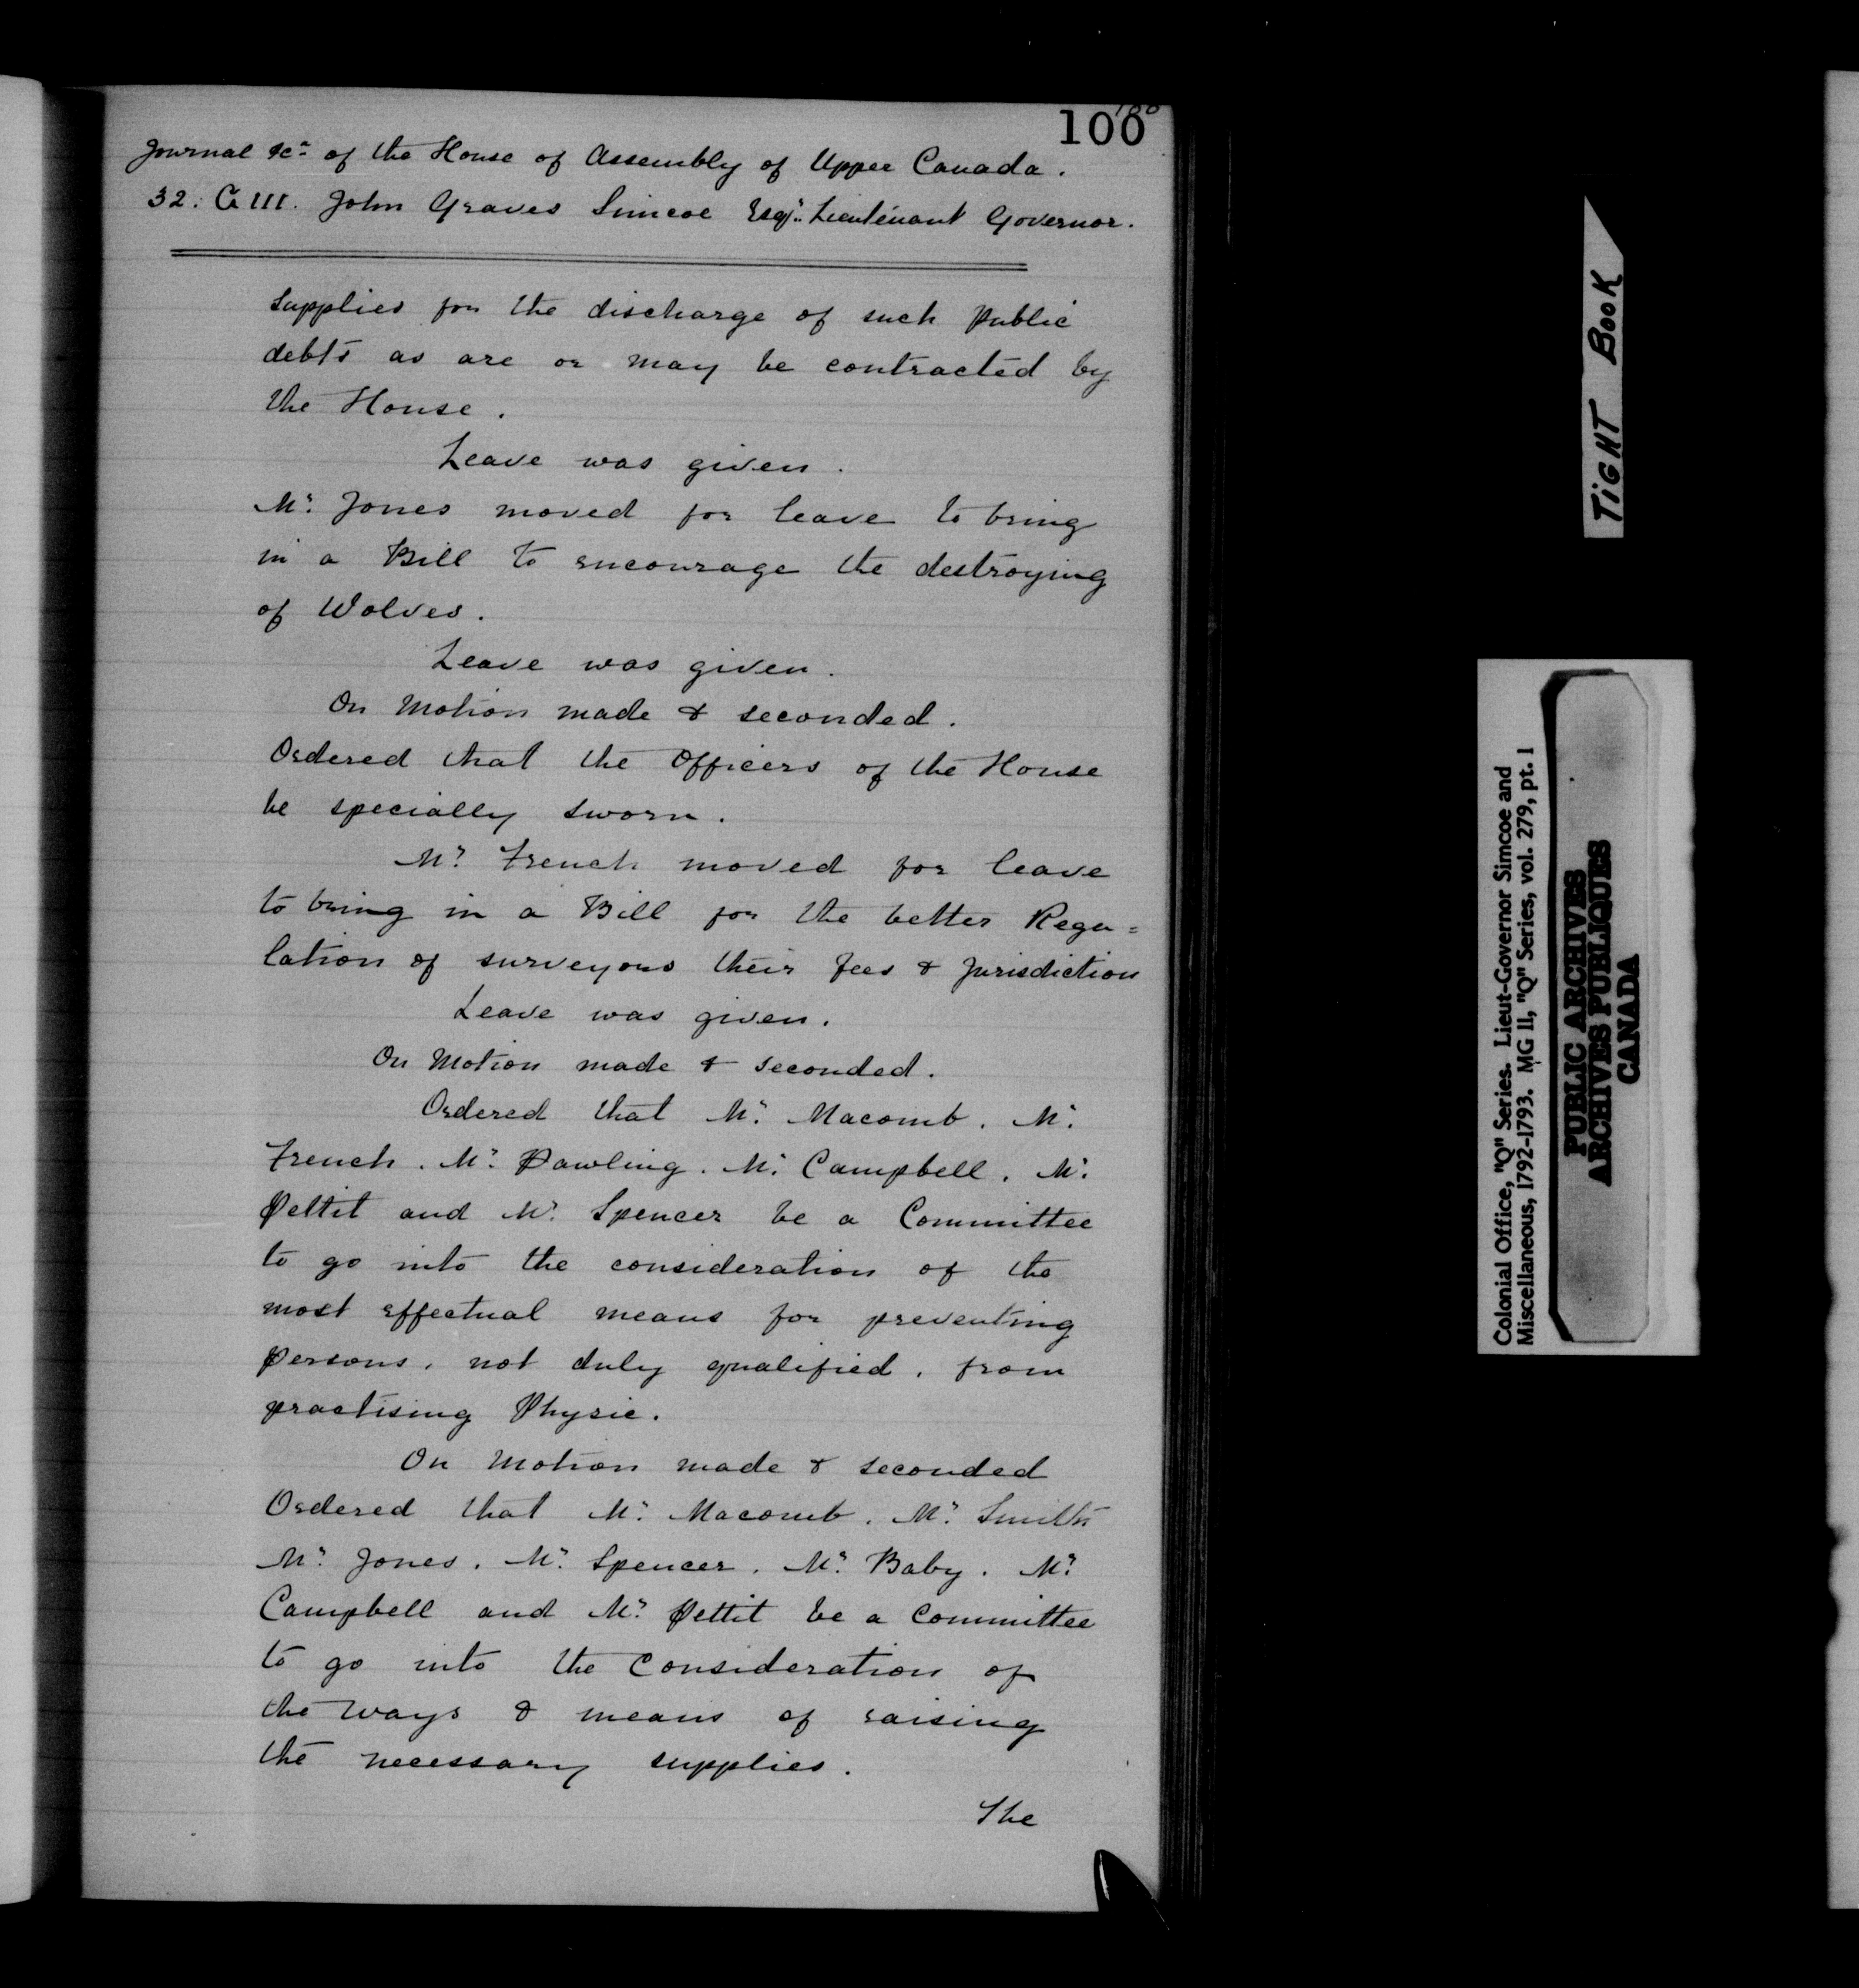 100
Journal &c.a of the House of Assembly of Upper Canada.
32. G III. John Graves Simcoe Esqr. Lieutenant Governor.
Supplies for the discharge of such Public
debts as are or may be contracted by
the House.
Leave was given.
Mr. Jones moved for leave to bring
in a Bill to encourage the destroying
of Wolves.
Leave was given.
On Motion made & seconded.
Ordered that the Officers of the House
be specially sworn.
Mr. French moved for leave
to bring in a Bill for the better Regu=
lation of surveyors their fees & Jurisdiction
Leave was given.
On Motion made & seconded.
Ordered that Mr. Macomb. Mr.
French. Mr. Pawling. Mr. Campbell. Mr.
Pettit and Mr. Spencer be a Committee
to go into the consideration of the
most effectual means for preventing
persons, not duly qualified, from
practising Physic.
On Motion made & seconded
Ordered that Mr. Macomb. Mr. Smith
Mr. Jones. Mr. Spencer. Mr. Baby. Mr.
Campbell and Mr. Pettit be a Committee
to go into the Consideration of
the ways & means of raising
the necessary supplies.
The
TIGHT BOOK
Colonial Office, "Q" Series. Lieut-Governor Simcoe and
Miscellaneous, 1792-1793. MG 11, "Q" Series, vol. 279, pt. 1
PUBLIC ARCHIVES
ARCHIVES PUBLIQUES
CANADA